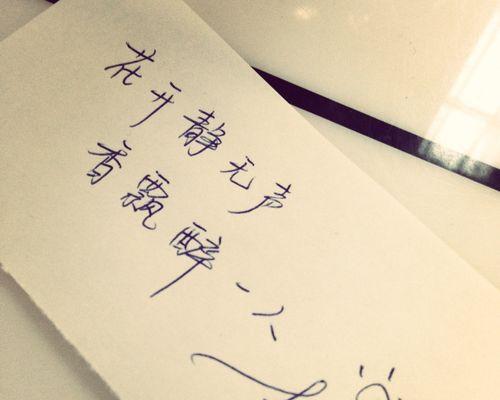 花开静无声
香飘醉一人